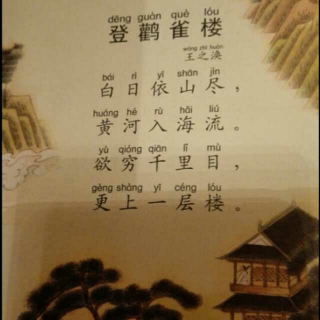 dēng guàn què lóu
登鹳雀楼
wáng zhī huàn
王之涣
bái rì yī shān jìn
白日依山尽，
huáng hé rù hǎi liú
黄河入海流。
yù qióng qiān lǐ mù
欲穷千里目，
gèng shàng yī céng lóu
更上一层楼。